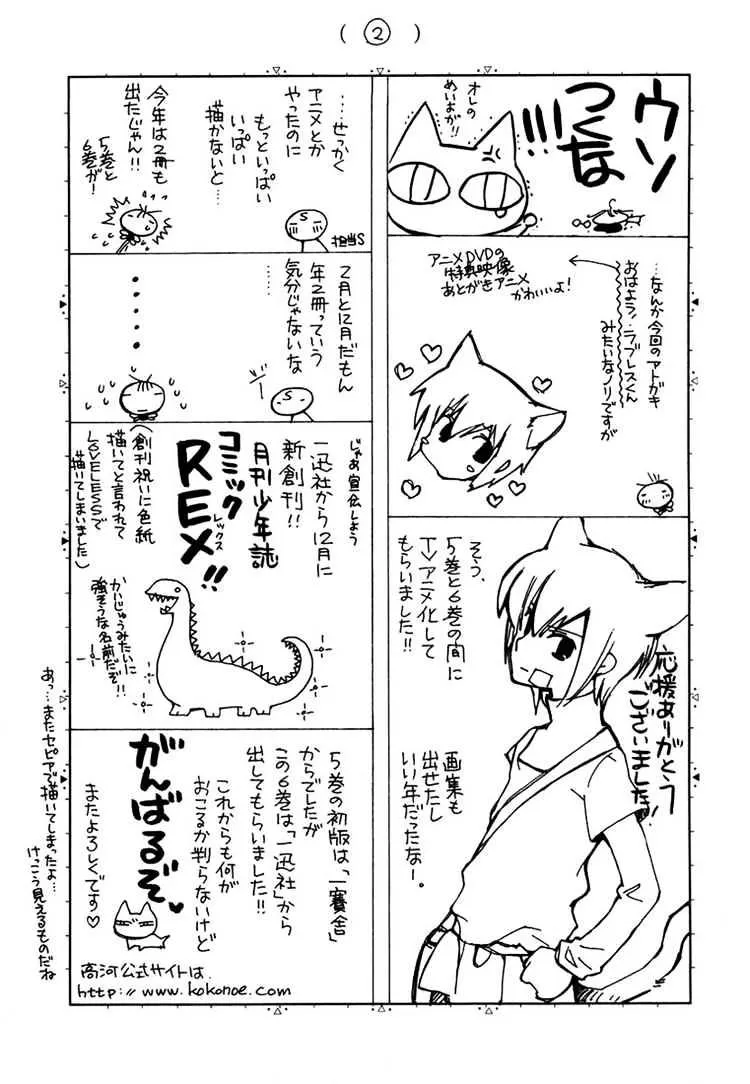 (②)
ウソ
つくな
!!!
オレの
めいよが!!
…なんか今回のアトガキ
おはよう!ラブレスくん
みたいなノリですが
アニメDVDの
特典映像
あとがきアニメ
かわいいよ!
そう、
5巻と6巻の間に
TVアニメ化して
もらいました!!
応援ありがとう
ございました!
画集も
出せたし
いい年だったなー。
……せっかく
アニメとか
やったのに
もっといっぱい
いっぱい
描かないと…
S
担当S
今年は2冊も
出たじゃん!!
5巻と
6巻が!
2月と12月だもん
年2冊っていう
気分じゃないな
S
・・・・・・
じゃあ宣伝しよう
一迅社から12月に
新創刊!!
月刊少年誌
コミック
REX!!
レックス
(創刊祝いに色紙
描いてと言われて
LOVELESSで
描いてしまいました)
かいじゅうみたいに
強そうな名前だぞ!!
5巻の初版は、「一賽舎」
からでしたが
この6巻は、「一迅社」から
出してもらいました!!
これからも何が
おこるか判らないけど
がんばるぞ
またよろしくです♡
高河公式サイトは.
http://www.kokonoe.com
あっ…またセピアで描いてしまったよ…
けっこう見えるものだね